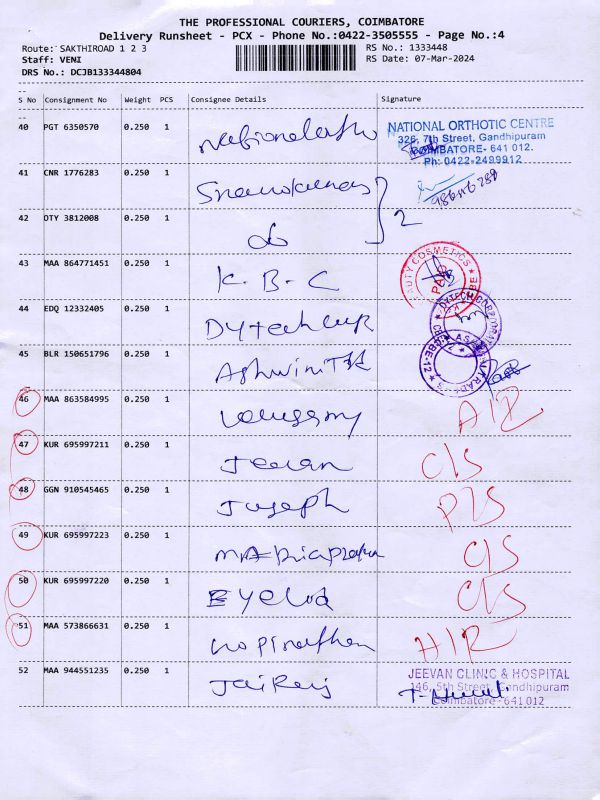 THE PROFESSIONAL COURIERS, COIMBATORE
Delivery Runsheet - PCX - Phone No.:0422-3505555 - Page No.:4
Route: SAKTHIROAD 1 2 3 RS No.: 1333448
Staff: VENI RS Date: 07-Mar-2024
DRS No.: DCJB133344804
S No Consignment No Weight PCS Consignee Details Signature
40 PGT 6350570 0.250 1
NATIONAL ORTHOTIC CENTRE
326, 7th Street, Gandhipuram
COIMBATORE- 641 012.
Ph: 0422-2499912
41 CNR 1776283 0.250 1
42 OTY 3812008 0.250 1 do 2
43 MAA 864771451 0.250 1 K.B.C
BEAUTY COSMETICS
PAID
44 EDQ 12332405 0.250 1 Dytech Cup
DYTECH CORPORA
45 BLR 150651796 0.250 1 Ashwini Tex
CBE-12
46 MAA 863584995 0.250 1
47 KUR 695997211 0.250 1 Jeevan C/S
48 GGN 910545465 0.250 1 Joseph P/S
49 KUR 695997223 0.250 1 C/S
50 KUR 695997220 0.250 1 C/S
51 MAA 573866631 0.250 1 Gopinathan
52 MAA 944551235 0.250 1 Jai Raj
JEEVAN CLINIC & HOSPITAL
146, 5th Street, Gandhipuram
Coimbatore - 641 012